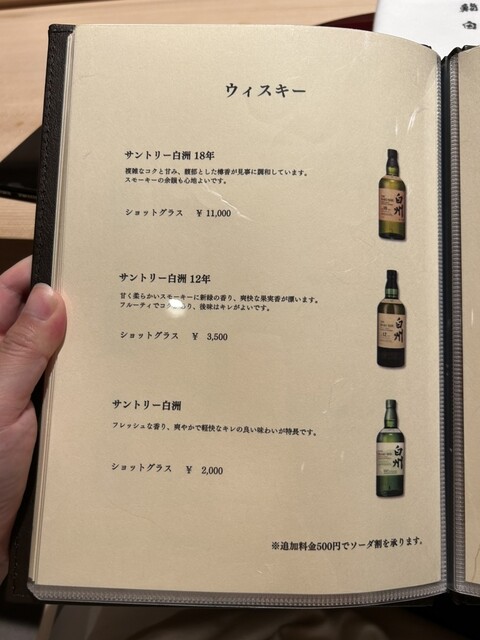 ウィスキー
サントリー白洲 18年
複雑なコクと甘み、馥郁とした樽香が見事に調和しています。
スモーキーの余韻も心地よいです。
ショットグラス ￥ 11,000
サントリー白洲 12年
甘く柔らかいスモーキーに新緑の香り、爽快な果実香が漂います。
フルーティでコクがあり、後味はキレがよいです。
ショットグラス ￥ 3,500
サントリー白洲
フレッシュな香り、爽やかで軽快なキレの良い味わいが特長です。
ショットグラス ￥ 2,000
※追加料金500円でソーダ割を承ります。
白州
白州
白州